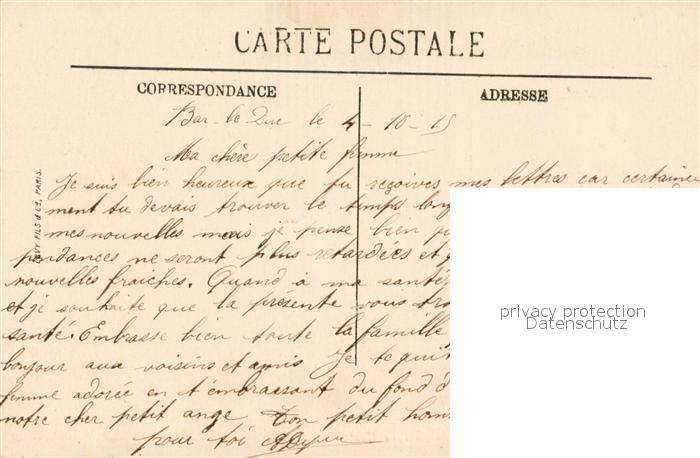 CARTE POSTALE
CORRESPONDANCE
ADRESSE
Bar-le Duc le 4-10-15
Ma chère petite femme
Je suis bien heureux que tu reçoives mes lettres car certaine
ment tu devais trouver le temps long
mes nouvelles mais je pense bien qu
pondances ne seront plus retardées et q
nouvelles fraiches. Quand à ma santé,
et je souhaite que la présente vous tro
santé. Embrasse bien toute la famille
bonjour aux voisins et amis Je te quit
femme adorée en t'embrassant du fond d
notre cher petit ange Ton petit hom
pour toi
LEVY FILS & Cie, PARIS.
privacy protection
Datenschutz